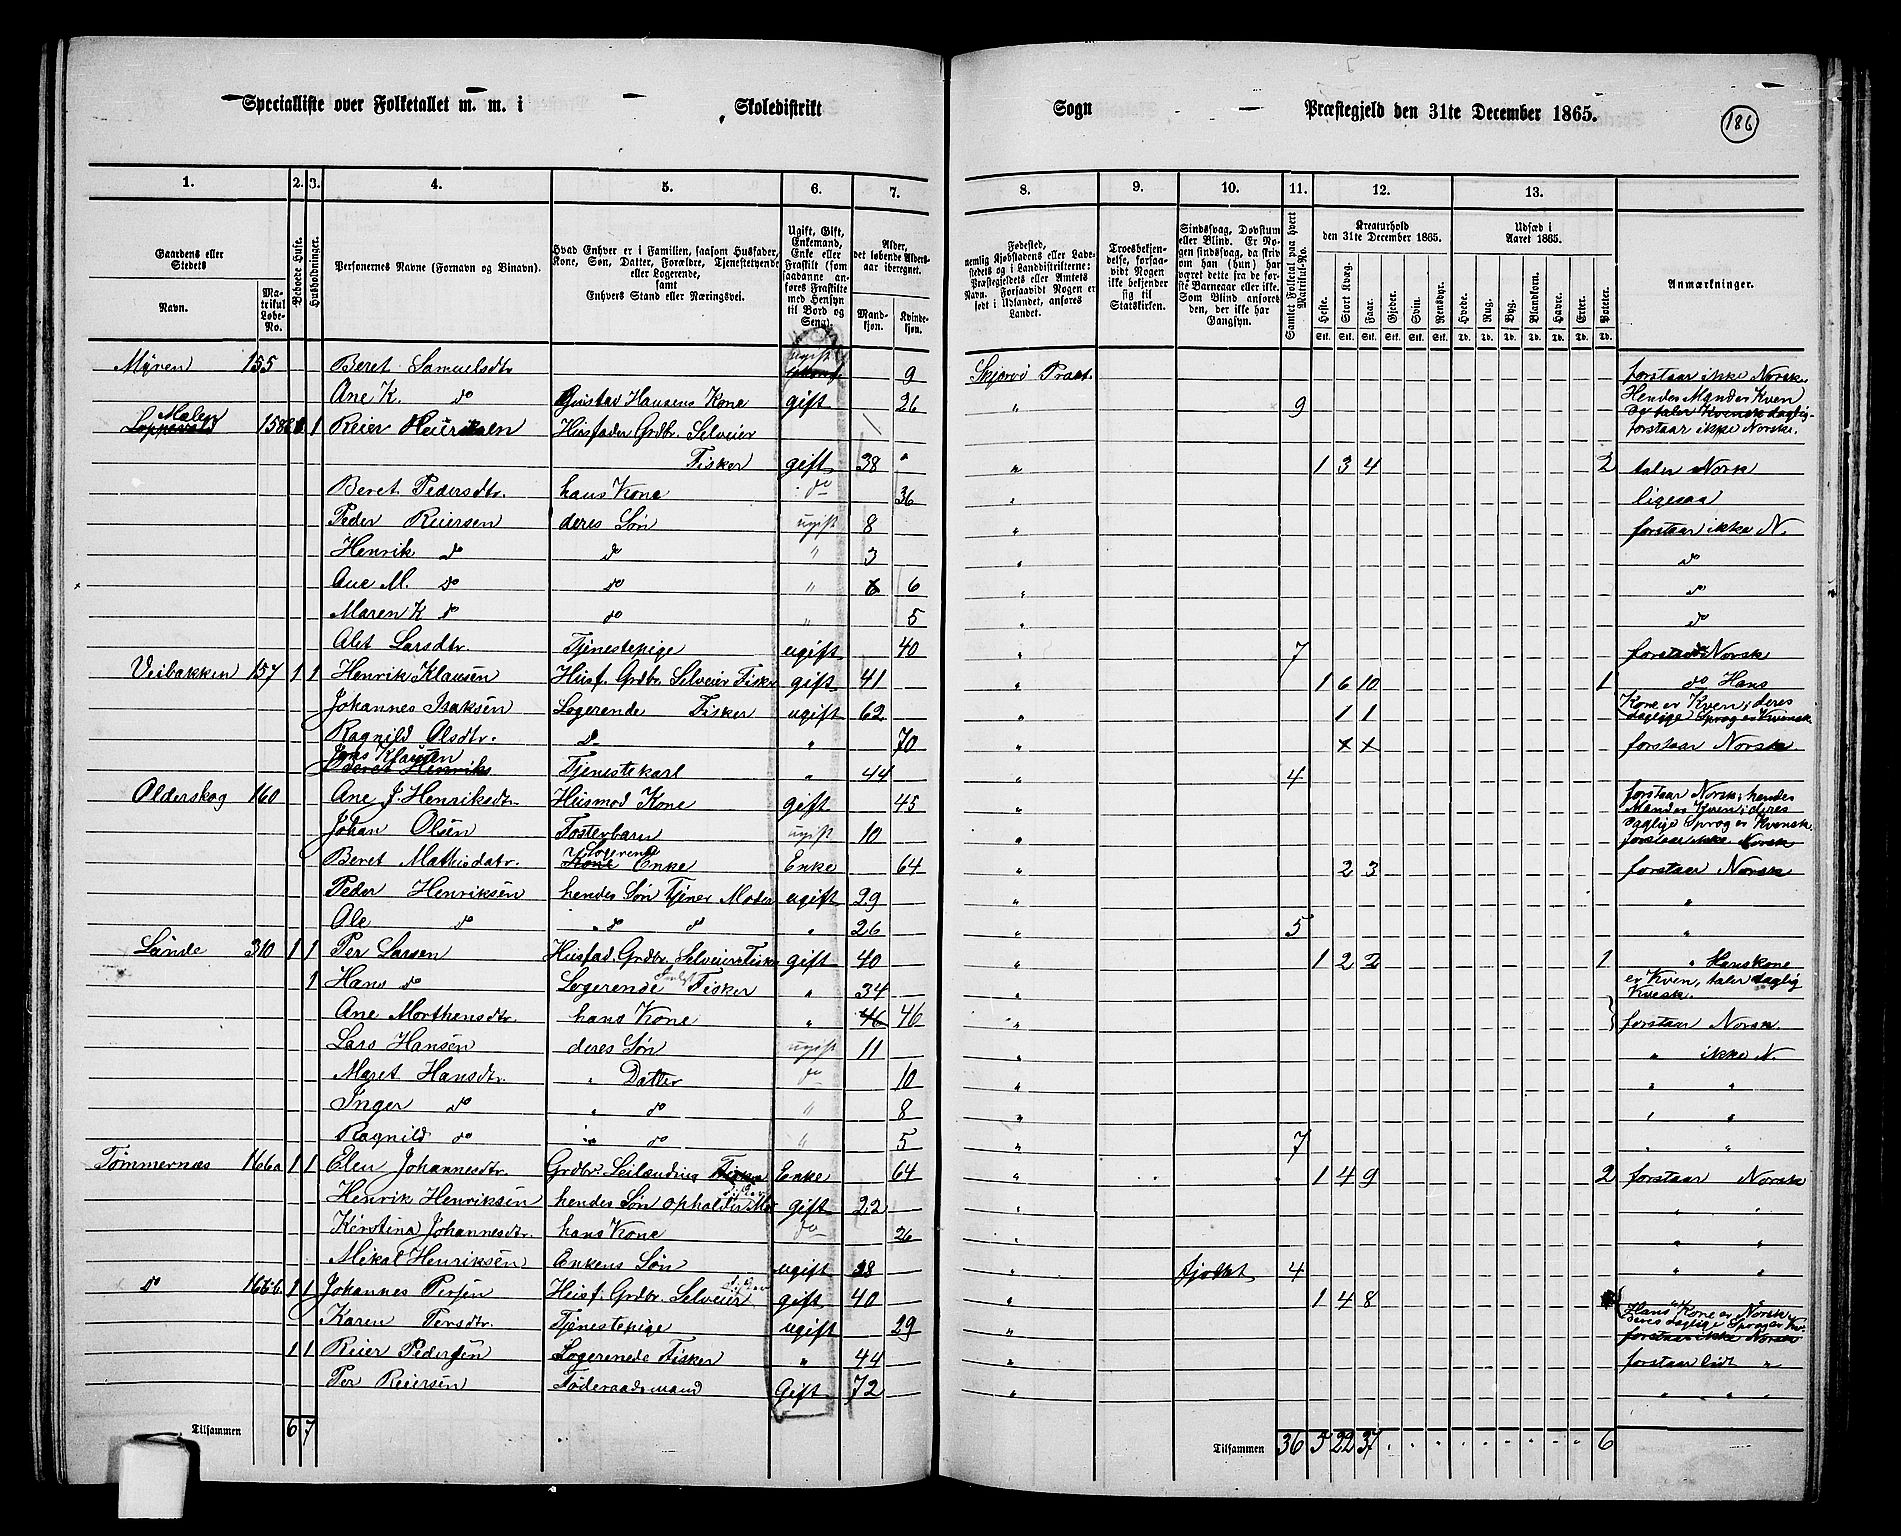 Specialliste over Folketallet m. m. i Skoledistrikt Sogn Præstegjeld den 31te December 1865. 186
1. 2. 3. 4. 5. 6. 7. 8. 9. 10. 11. 12. 13.
Gaardens eller Stedets
Navn. Matrikul Løbe-No.
Beboede Huse.
Husholdninger.
Personernes Navne (Fornavn og Binavn).
Hvad Enhver er i Familien, saasom Husfader, Kone, Søn, Datter, Forældre, Tjenestetyende eller Logerende,
samt
Enhvers Stand eller Næringsvei.
Ugift, Gift, Enkemand, Enke eller Fraskilt (som saadanne anføres Fraskilte med Hensyn til Bord og Seng).
Alder, det løbende Aldersaar iberegnet.
Mandkjøn. Kvindekjøn.
Fødested, nemlig Kjøbstadens eller Ladestedets og i Landdistrikterne: Præstegjeldets eller Amtets Navn. Forsaavidt Nogen er født i Udlandet, anføres Landet.
Troesbekjendelse, forsaavidt Nogen ikke bekjender sig til Statskirken.
Sindssvag, Døvstum eller Blind. Er Nogen sindssvag, da skriv om han (hun) har været dette fra de første Barneaar eller ikke. Som Blind anføres den, der ikke har Gangsyn.
Samlet Folketal paa hvert Matrikul-No.
Kreaturhold den 31te December 1865.
Heste. Stort Kvæg. Faar. Gjeder. Svin. Rensdyr.
Udsæd i Aaret 1865.
Hvede. Rug. Byg. Blandkorn. Havre. Erter. Poteter.
Anmærkninger.
Myren 155 Beret Samuelsdtr ugift 9 Skjervø Præst. forstaar ikke Norsk.
Ane K. do Gustav Hansens Kone gift 26 " 9 Hendes Mand er Kven
Malen Loppevold 158 1 Reier Heiriksen Husfader Grdbr. Selveier og taler Kvensk daglig. forstaar ikke Norsk.
Fisker gift 38 " 1 3 4 2 taler Norsk
Beret Pedersdtr. hans Kone do 36 " ligesaa
Peder Reiersen deres Søn ugift 8 " forstaar ikke N.
Henrik do do " 3 " do
Ane M. do do " 6 6 " do
Maren K do do " 5 " do
Alet Larsdtr Tjenestepige ugift 40 " 7 forstaar Norsk
Veibakken 157 1 1 Henrik Klausen Husf. Grdbr. Selveier Fisker gift 41 " 1 6 10 1 do Hans
Johannes Isaksen Logerende Fisker ugift 62 " 1 1 Kone er Kven; deres daglige Sprog er Kvensk
Ragnild Olsdtr. do " 70 " x x forstaar Norsk
Jens Klausen Beret Henriks Tjenestekarl " 44 " 4
Olderskog 160 Ane J. Henriksdtr. Husmod Kone gift 45 " forstaar Norsk; hendes Mand er Kven; deres
Johan Olsen Fosterbarn ugift 10 " daglige Sprog er Kvensk. forstaar ikke Norsk
Beret Mathisdatr. Logerende Kone Enke Enke 64 " 2 3 forstaar Norsk
Peder Henriksen hendes Søn Tjener Moder ugift 29 " "
Ole do " do do " 26 " 5 "
Lunde 310 1 1 Per Larsen Husfad. Grdbr. Selveier Fisker gift 40 " 1 2 2 1 " Hans kone
1 Hans do Logerende Fisker " 34 " er Kven, taler daglig Kvesk.
Ane Morthensdtr. hans Kone " 46 46 " forstaar Norsk
Lars Hansen deres Søn ugift 11 " " ikke N
Maret Hansdtr. " Datter do 10 " " "
Inger do " do " 8 " " "
Ragnild do " do " 5 " 7 " "
Tømmernæs 166a 1 1 Elen Johannesdtr. Grdbr. Leilænding Fisker Enke 64 " 1 4 9 2 forstaar Norsk
Henrik Henriksen hendes Søn opholdes Mor gift 22 " " "
Kirstina Johannesdtr. hans Kone do 26 " " "
Mikal Henriksen Enkens Søn ugift 28 " 4 " "
do 166b 1 1 Johannes Persen Husf. Grdbr. Selveier gift 40 " 1 4 8 Hans Kone er Norsk
Karen Persdtr. Tjenestepige ugift 29 " deres daglige Sprog er Kv. forstaar ikke Norsk
1 1 Reier Pedersen Logerende Fisker " 44 " forstaar lidt "
Per Reiersen Føderaadsmand Gift 72 " " " "
Tilsammen 6 7 Tilsammen 36 5 22 37 6